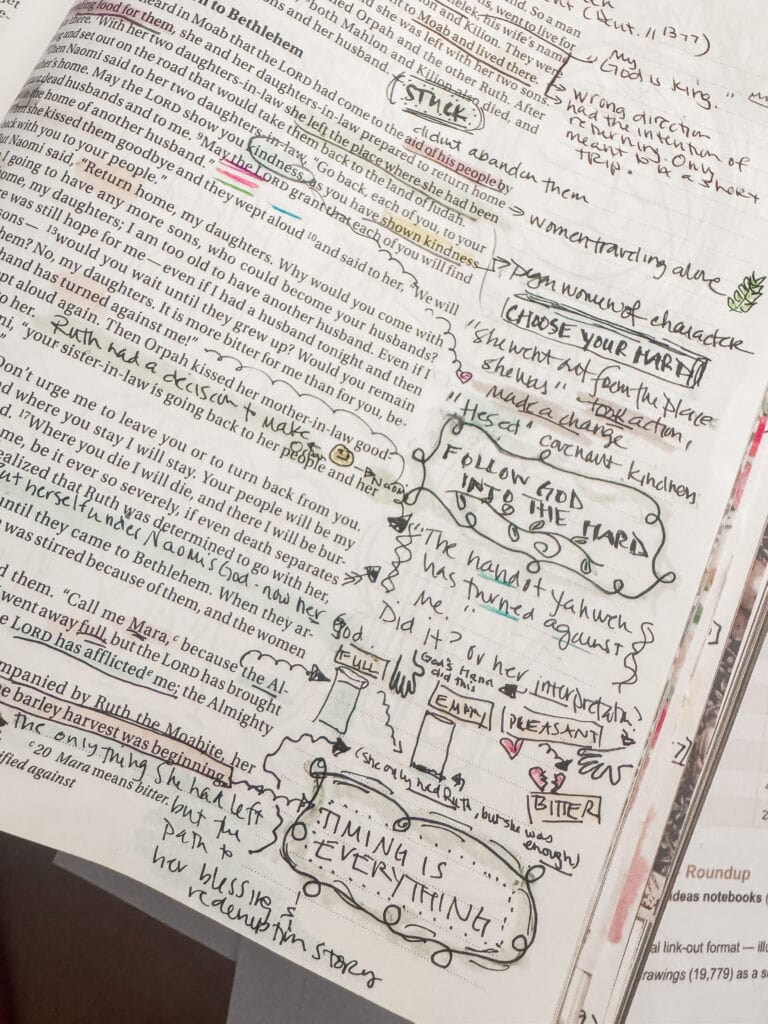 went to live for
. So a man
elek, his wife's name
on and Kilion. They were
t to Moab and lived there.
d she was left with her two sons.
ed Orpah and the other Ruth. After
," both Mahlon and Kilion also died, and
ons and her husband.
n to Bethlehem
heard in Moab that the LORD had come to the aid of his people by
iding food for them, she and her daughters-in-law prepared to return home
n there. With her two daughters-in-law she left the place where she had been
g and set out on the road that would take them back to the land of Judah.
Then Naomi said to her two daughters-in-law, "Go back, each of you, to your
er's home. May the LORD show you kindness, as you have shown kindness
dead husbands and to me. 9May the LORD grant that each of you will find
n the home of another husband."
en she kissed them goodbye and they wept aloud 10and said to her, "We will
back with you to your people."
But Naomi said, "Return home, my daughters. Why would you come with
I going to have any more sons, who could become your husbands?
ome, my daughters; I am too old to have another husband. Even if I
re was still hope for me—even if I had a husband tonight and then
sons— 13would you wait until they grew up? Would you remain
hem? No, my daughters. It is more bitter for me than for you, be-
hand has turned against me!"
ept aloud again. Then Orpah kissed her mother-in-law good-
to her.
mi, "your sister-in-law is going back to her people and her
Don't urge me to leave you or to turn back from you.
nd where you stay I will stay. Your people will be my
d. 17Where you die I will die, and there I will be bur-
me, be it ever so severely, if even death separates
ealized that Ruth was determined to go with her,
until they came to Bethlehem. When they ar-
was stirred because of them, and the women
d them. "Call me Mara, c because the Al-
went away full, but the LORD has brought
e LORD has afflicted e me; the Almighty
mpanied by Ruth the Moabite, her
e barley harvest was beginning.
c20 Mara means bitter.
ified against
(Deut. 11
My
God is King.
wrong direction
had the intention of
returning. Only
meant to be a short
trip.
STUCK
didnt abandon them
women traveling alone
women of character
CHOOSE YOUR HARD
"she went out from the place
she was" took action,
made a change
"Hesed" covenant kindness
FOLLOW GOD
INTO THE HARD
Ruth had a decision to make
put herself under Naomi's God - now her
God
"The hand of Yahweh
has turned against
me."
Did it? or her interpretation
FULL
God's Hand
did this
EMPTY
PLEASANT
BITTER
(she only had Ruth, but she was
enough)
TIMING IS
EVERYTHING
the only thing she had left
but the
path to
her blessing &
redemption story
Roundup
deas notebooks (
al link-out format — ill
rawings (19,779) as a s